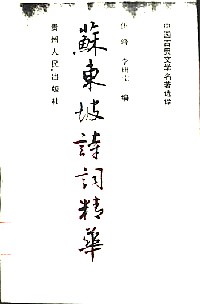 中国古典文学名著选译
编
蘇東坡詩詞精華
贵州人民出版社